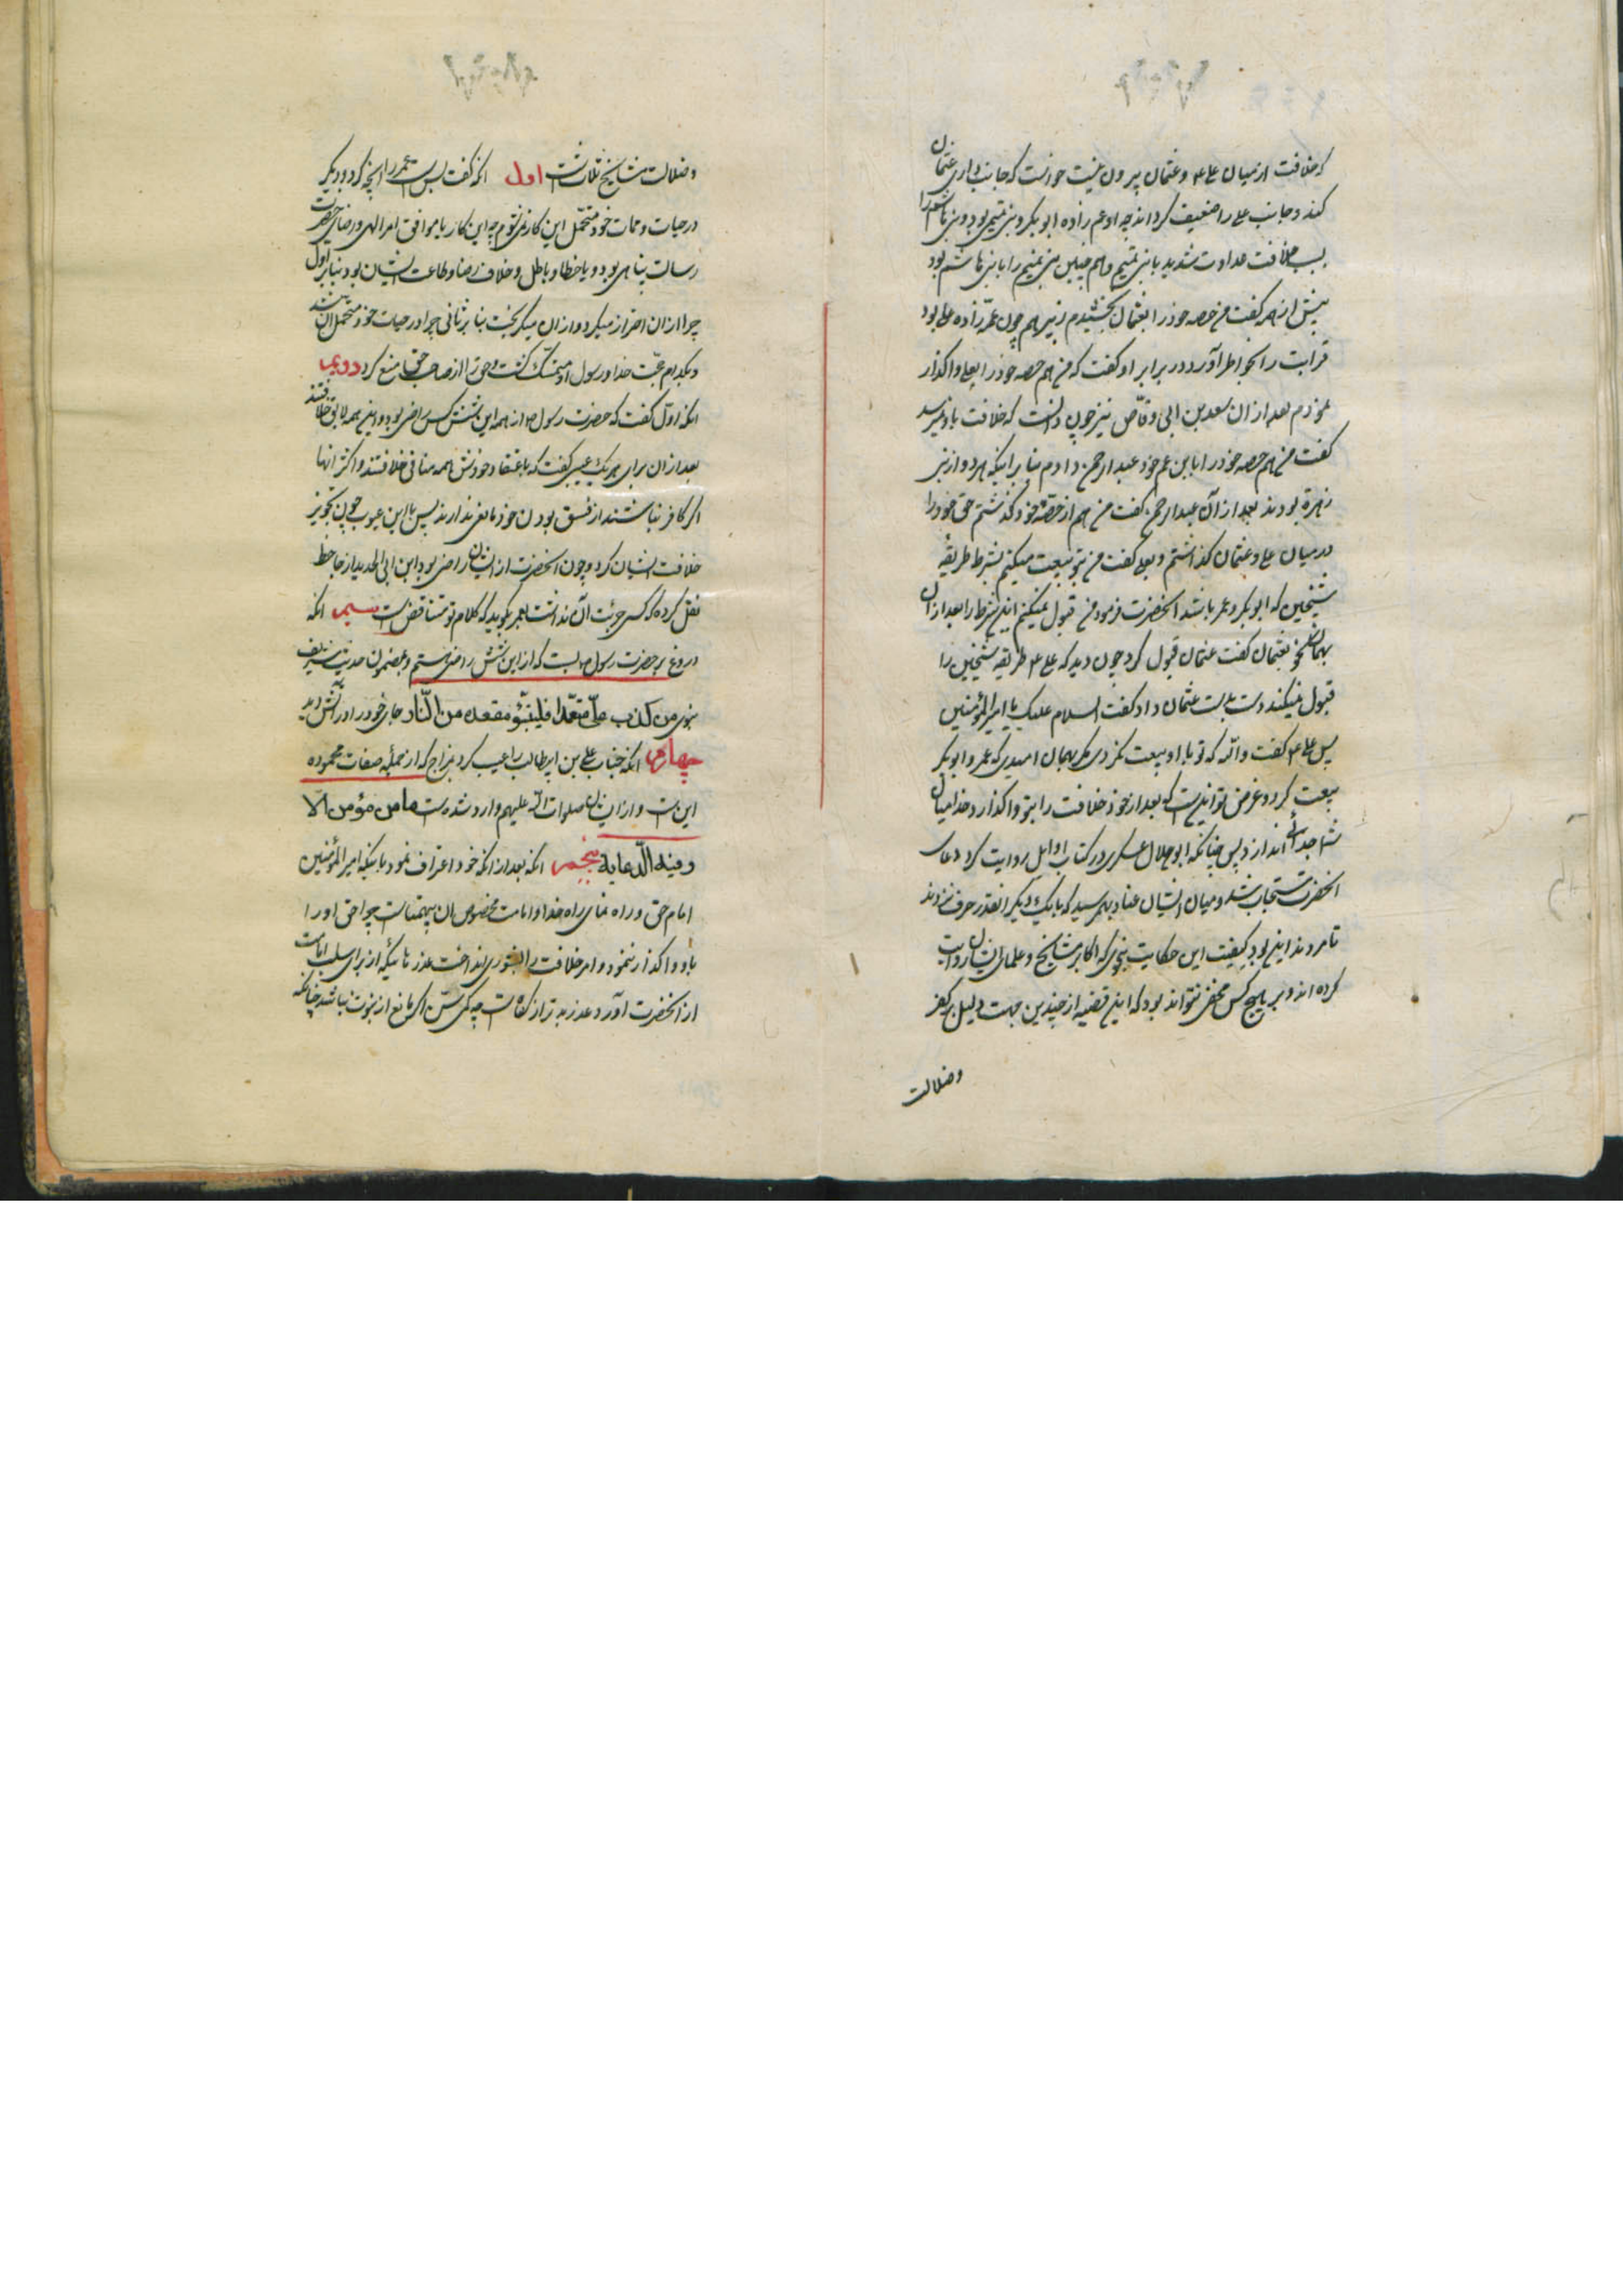 که خلافت از میان علی ۴ و عثمان بیرون نیست خواست که جانب داری عثمان
کند و جانب علی را ضعیف کرداند چه او عم زاده ابو بکر و بنی تمیم بود و بنی هاشم را
بسبب خلافت عداوت شدید با بنی تمیم و هم چنین بنی تمیم را با بنی هاشم بود
پیش از همه کفت من حصه خود را بعثمان بخشیدم زبیر هم چون عمه زاده علی بود
قرابت را بخواطر آورد در برابر او کفت که من هم حصه خود را بعلی واکذار
نمودم بعد از ان سعد بن ابی وقاص نیز چون دانست که خلافت باو نمیرسد
کفت من هم حصه خود را بابن عم خود عبد الرحمن دادم بنا برانیکه هر دو از بنی
زهره بودند بعد از آن عبد الرحمن کفت من هم از حصّه خود کذشتم حق خود را
در میان علی و عثمان کذاشتم و بعلی کفت من بتو بیعت میکنم بشرط طریقه
شیخین که ابو بکر و عمر باشند انحضرت فرمود من قبول نمیکنم این شرط را بعد از ان
بهمان نحو بعثمان کفت عثمان قبول کرد چون دید که علی ۴ طریقه شیخین را
قبول نمیکند دست بدست عثمان داد کفت السلام علیک یا امیر المؤمنین
پس علی ۴ کفت والله که تو با او بیعت نکردی مکر بهمان امیدی که عمر و ابو بکر
بیعت کرد و غرض تو اینست که بعد از خود خلافت را بتو واکذارد خدا میان
شما جدائی اندازد پس چنانکه ابو هلال عسکری در کتاب اوایل روایت کرده دعای
انحضرت مستجاب شد و میان ایشان عناد بهم رسید که با یک دیکر انقدر حرف نزدند
تا مردند این بود کیفیت این حکایت بنحوی که اکابر مشایخ و علمای ایشان روایت
کرده اند و بر هیچ کس مخفی نتواند بود که این قضیه از چندین جهت دلیل بر کفر
وضلالت
وضلالت مشایخ ثلاث است اول انکه کفت بس است عمر را انچه کرد و دیکر
در حیات و ممات خود متحمل این کار نمی توم چه این کار یا موافق امر الهی و رضای حضرت
رسالت پناهی بود و یا خطا و باطل و خلاف رضا و طاعت ایشان بود بنا بر اول
چرا از ان احتراز میکرد و از ان میکریخت بنا بر ثانی چرا در حیات خود متحمل ان شد
و بکدام حجت خدا و رسول او متمسک کشت و حق را از صاحب حق منع کرد دویم
انکه اول کفت که حضرت رسول ص از همه این شش کس راضی بود و این همه لایق خلافتند
بعد از ان برای هر یک عیبی کفت که باعتقاد خودش همه منافی خلافتند و اکثر انها
اکر کافر نباشند از فسق بودن خود مانعی ندارند پس با این عیوب چون تجویز
خلافت ایشان کرد و چون انحضرت از ایشان راضی بود ابن ابی الحدید از جاحظ
نقل کرده که کسی جرئت آن نداشت بعمر بکوید که کلام تو متناقض است سیم انکه
دروغ بر حضرت رسول ص بست که از این شش راضی ستم و بمضمون حدیث شریف
نبوی من کذب علیّ متعمّدا فلیتبوّء مقعده من النّار جای خود را در آتش دید
چهارم انکه جناب علی بن ابیطالب را عیب کرد بمزاح که از جمله صفات محموده
این ست و از ایشان صلوات الله علیهم وارد شده است ما من مؤمن الّا
وفیه الدّعابه پنجم انکه بعد از انکه خود اعتراف نمود باینکه امیر المؤمنین
امام حق و راه نمای راه خدا و امامت مخصوص ان پیمتاست چرا حق او را
باو واکذار ننمود و امر خلافت را بشوری انداخت عذرهائیکه از برای سلب امامت
از انحضرت آورد عذر بدتر از کناه است چه کمی سنّ اکر مانع از نبوت نباشد چنانکه